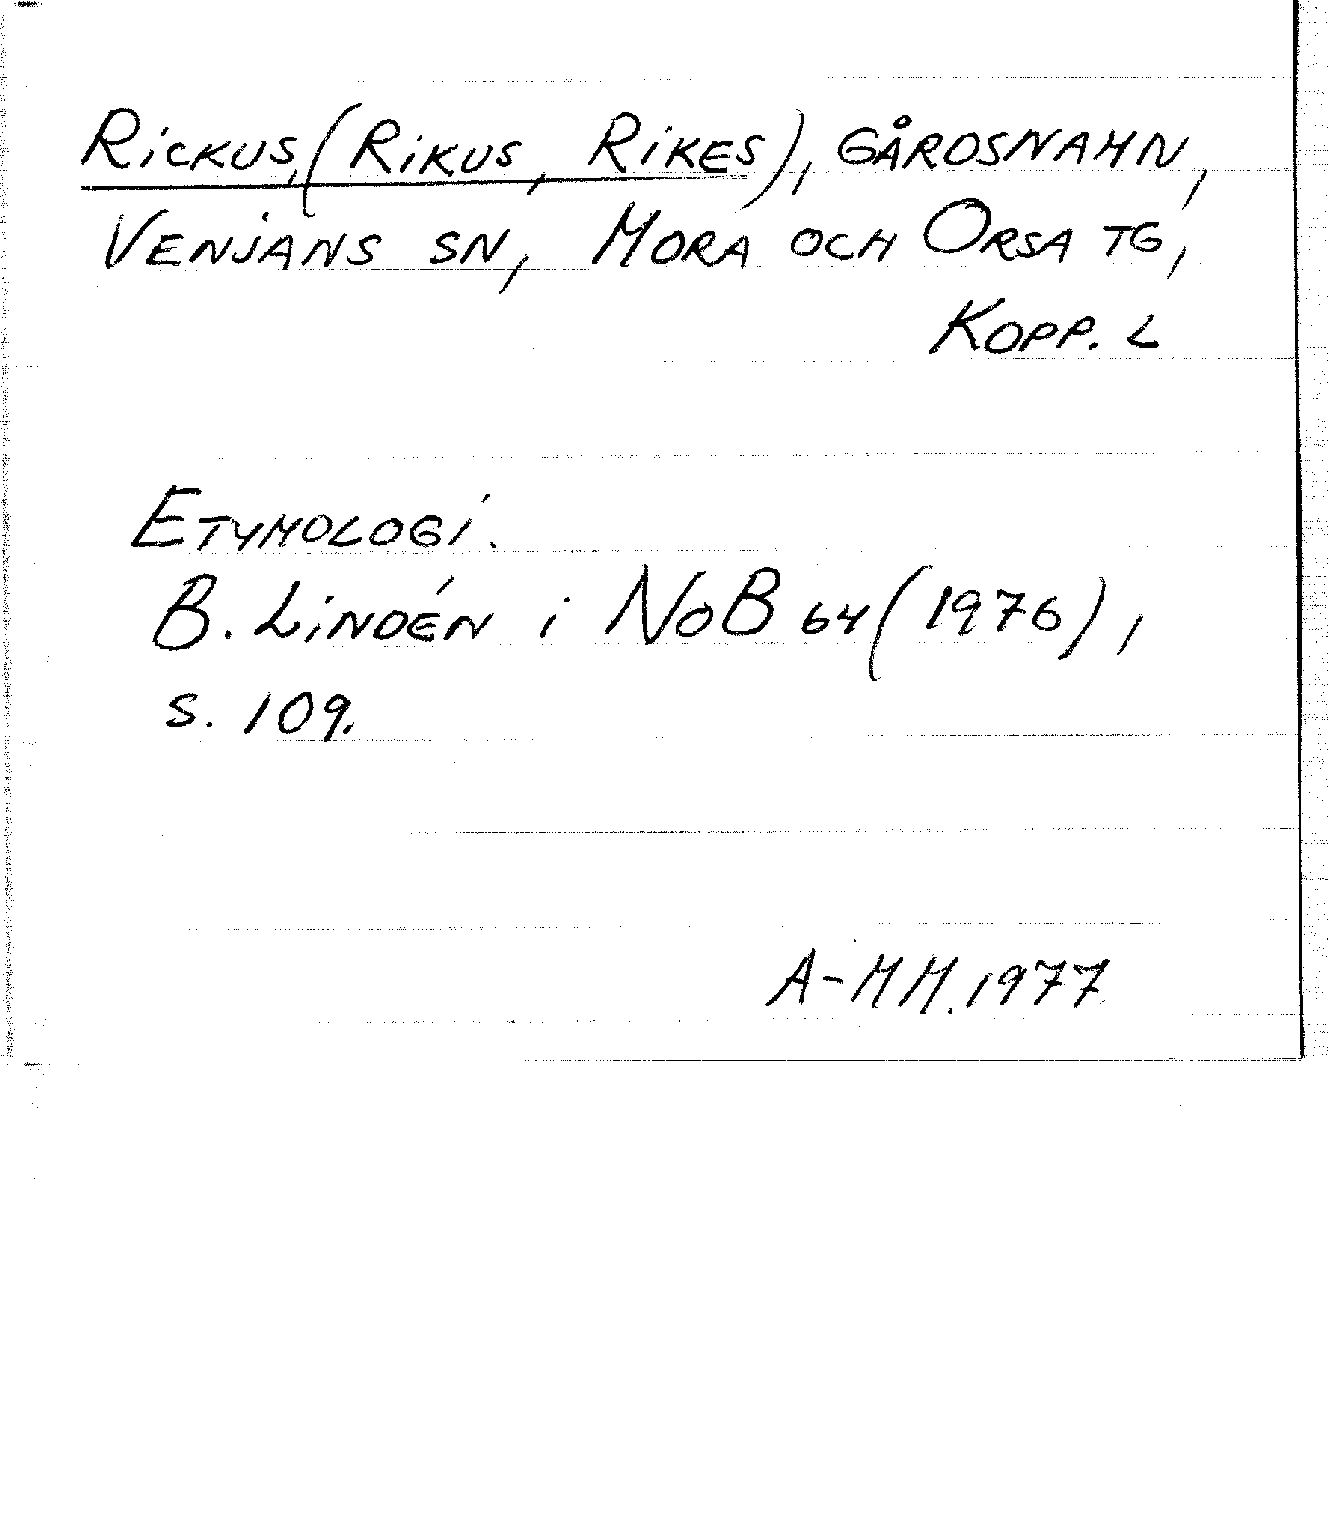 Rickus, (Rikus, Rikes), gårdsnamn,
Venjans sn, Mora och Orsa tg,
Kopp. l
Etymologi.
B. Lindén i NoB 64 (1976),
s. 109.
A-MM.1977